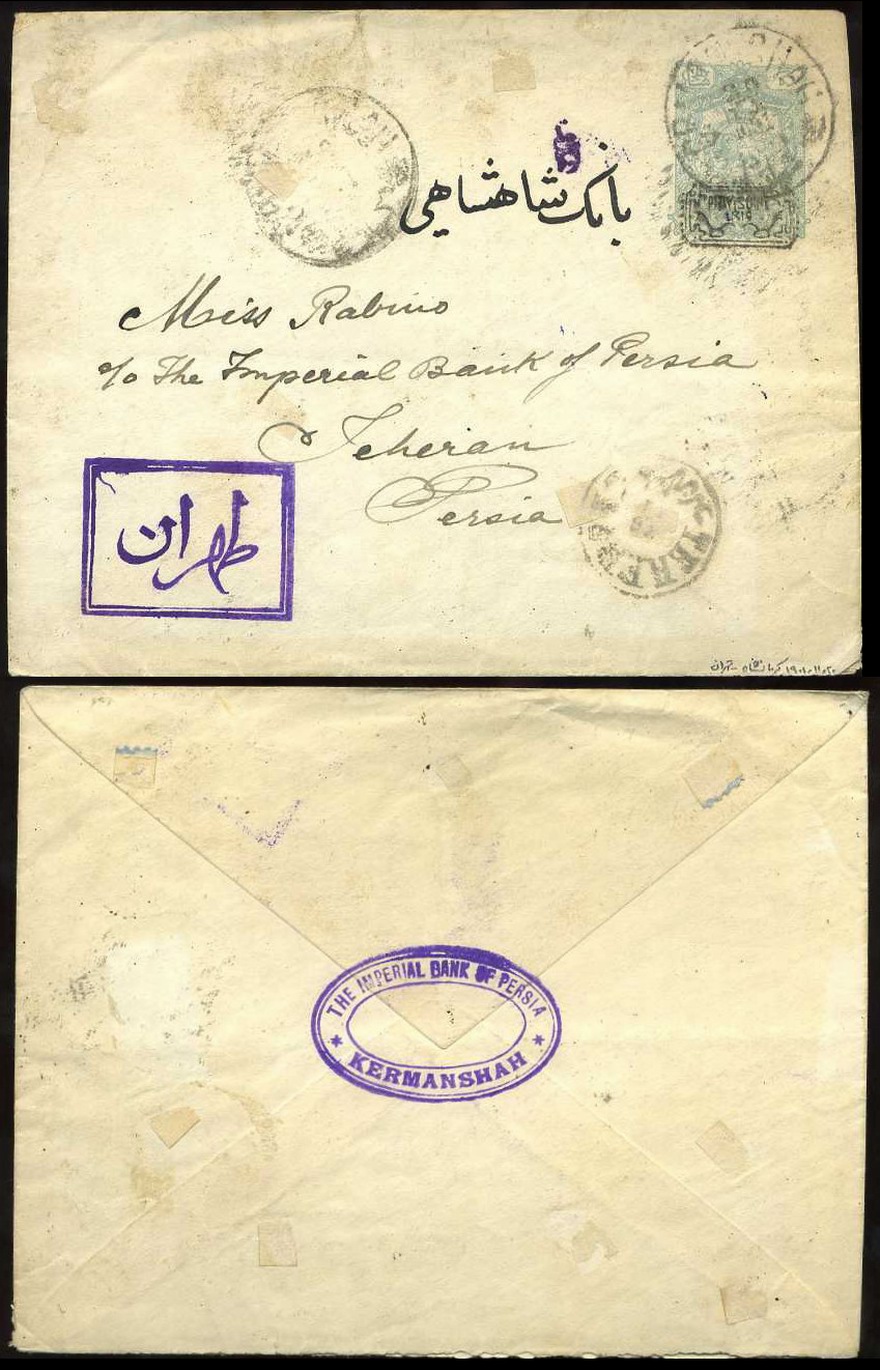 PROVISOIRE
1319
بانک شاهنشاهی
Miss Rabino
c/o The Imperial Bank of Persia
Teheran
Persia
طهران
کرمانشاه - تهران
THE IMPERIAL BANK OF PERSIA
KERMANSHAH